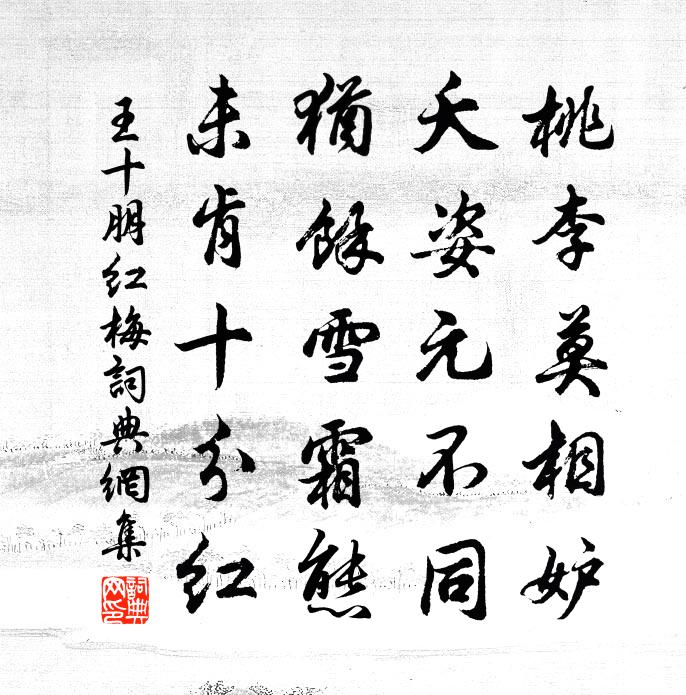 桃李莫相妒
夭姿元不同
猶餘雪霜態
未肯十分紅
王十朋紅梅詞典網集
詞典網印